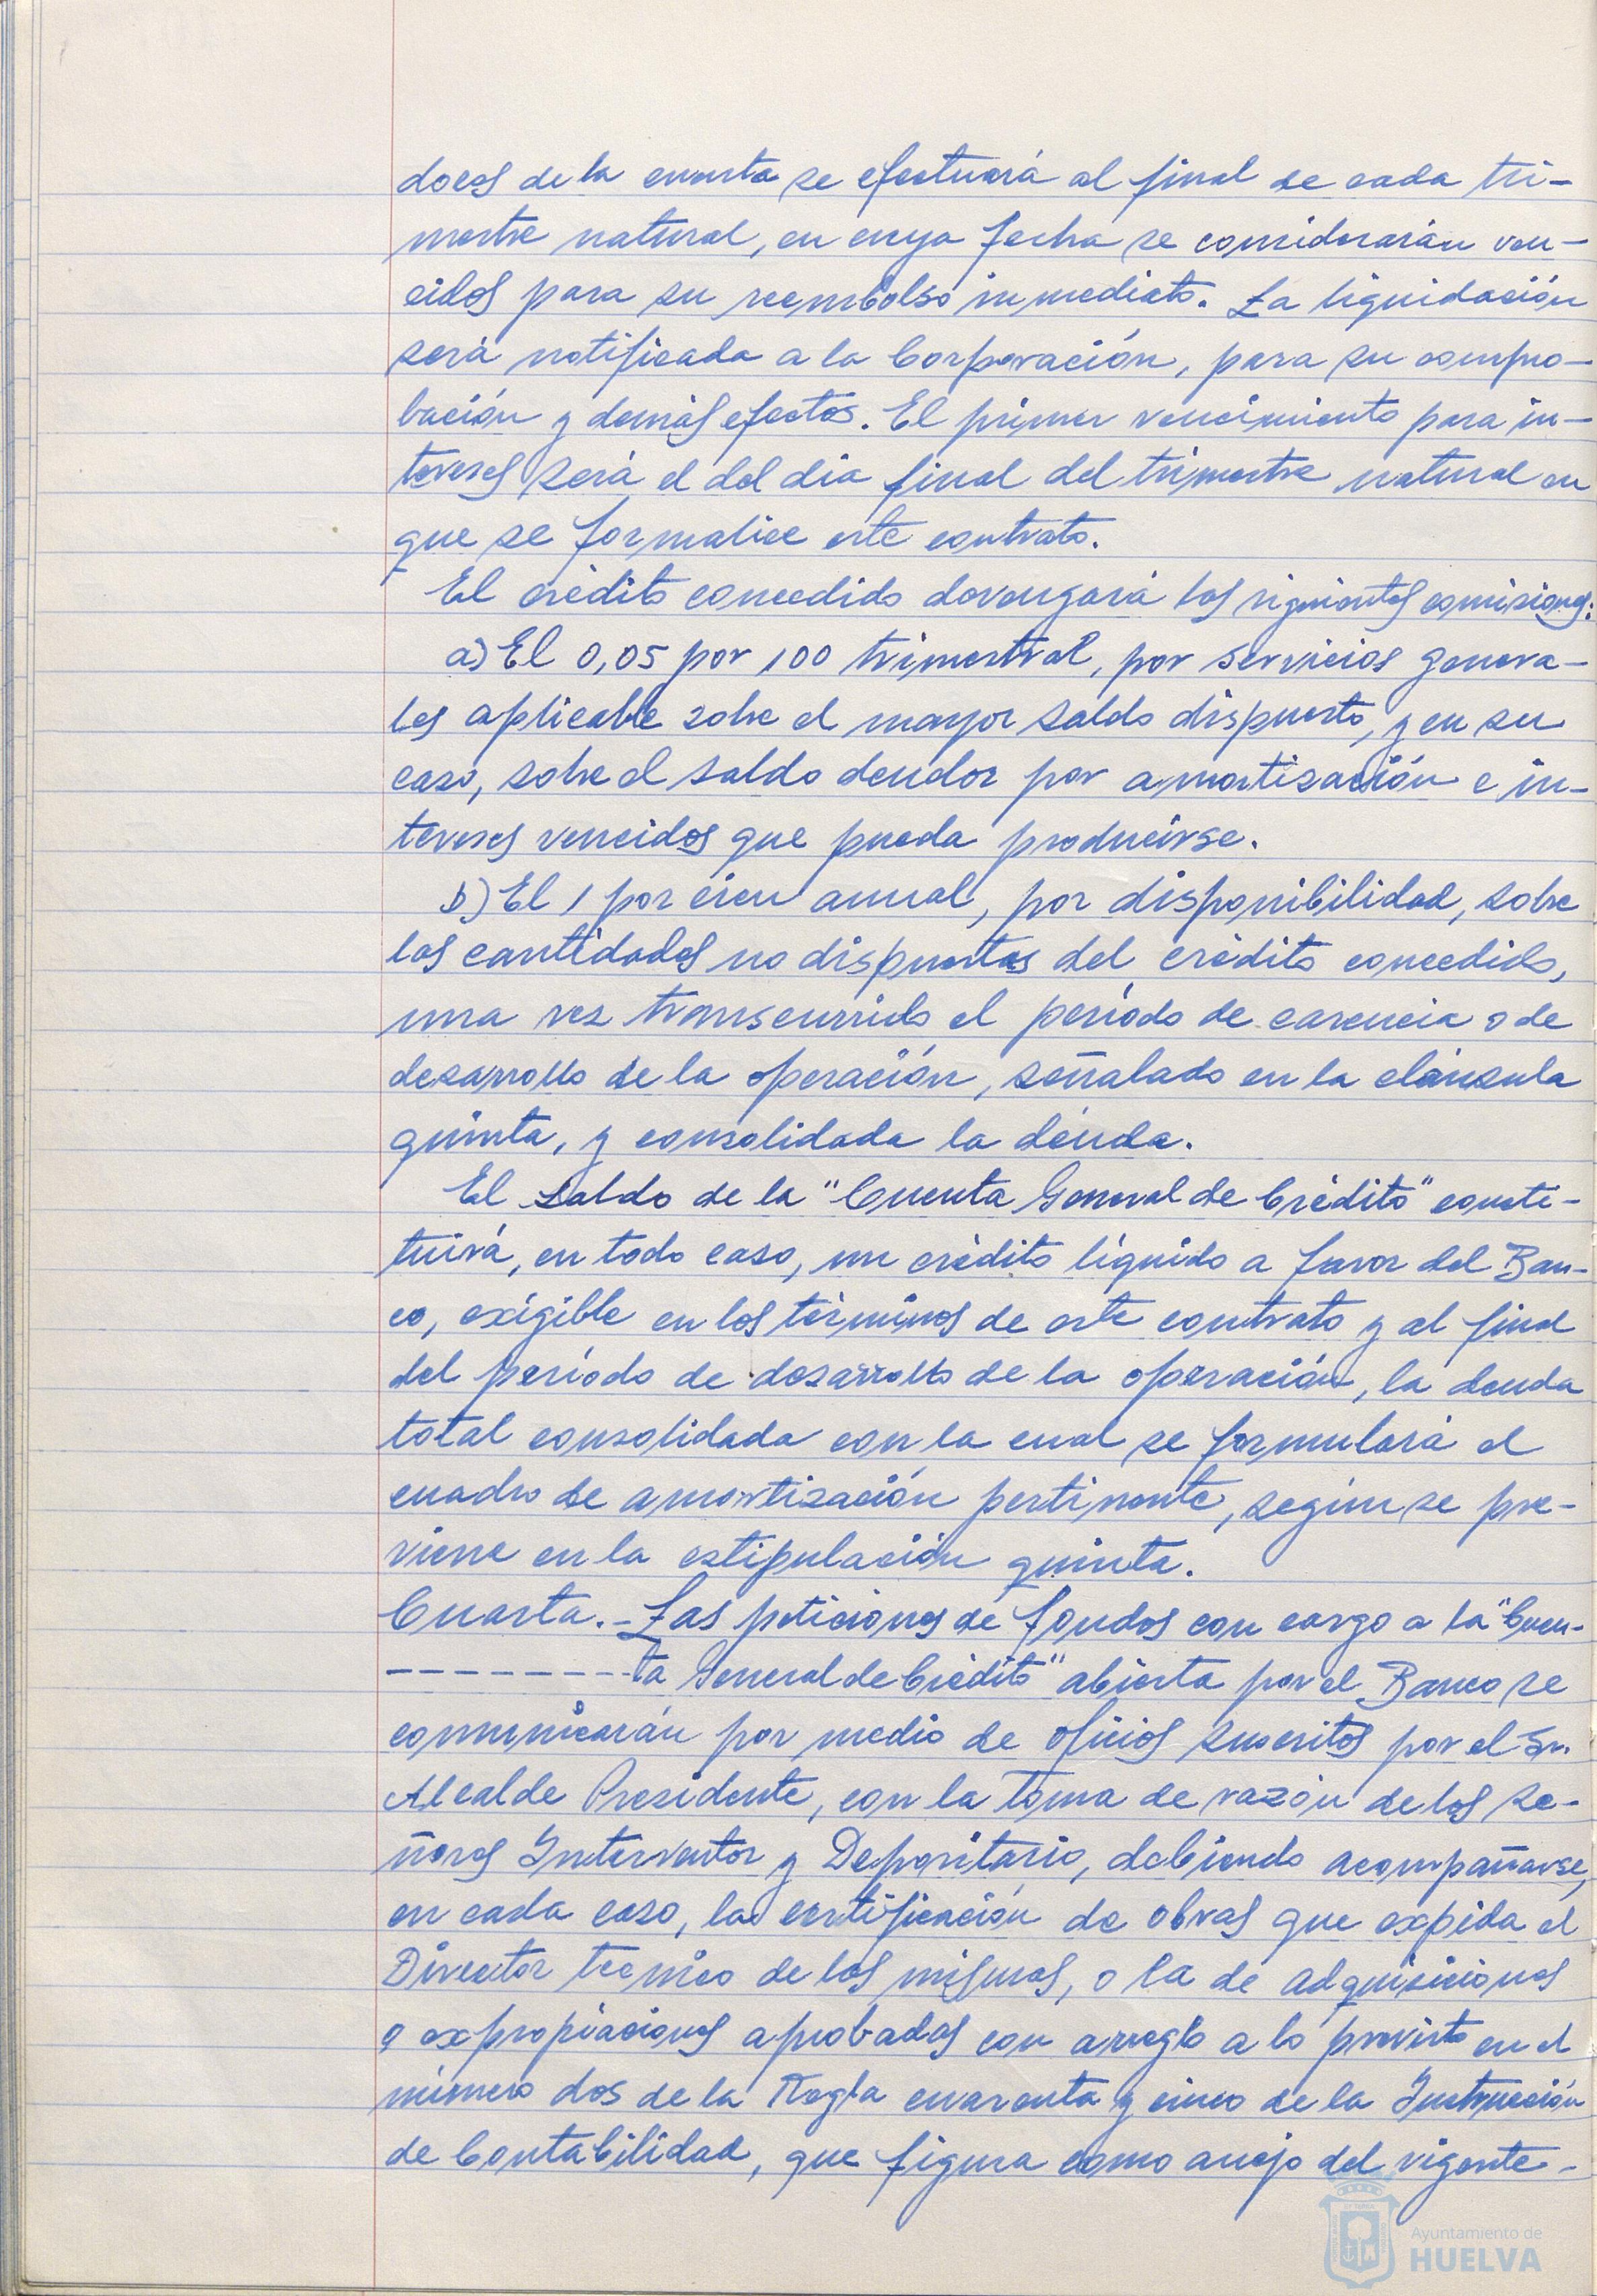 dores de la cuenta se efectuará al final de cada tri-
mestre natural, en cuya fecha se considerarán ven-
cidos para su reembolso inmediato. La liquidación
será notificada a la Corporación, para su compro-
bación y demás efectos. El primer vencimiento para in-
tereses será el del dia final del trimestre natural en
que se formalice este contrato.
El crédito concedido devengará las siguientes comisiones:
a) El 0,05 por 100 trimestral, por servicios genera-
les aplicable sobre el mayor saldo dispuesto, y en su
caso, sobre el saldo deudor por amortización e in-
tereses vencidos que pueda producirse.
b) El 1 por cien anual, por disponibilidad, sobre
las cantidades no dispuestas del crédito concedido,
una vez transcurrido el período de carencia o de
desarrollo de la operación, señalado en la cláusula
quinta, y consolidada la deuda.
El saldo de la "Cuenta General de Crédito" consti-
tuirá, en todo caso, un crédito líquido a favor del Ban-
co, exigible en los términos de este contrato y al final
del período de desarrollo de la operación, la deuda
total consolidada con la cual se formulará el
cuadro de amortización pertinente, según se pre-
viene en la estipulación quinta.
Cuarta.- Las peticiones de fondos con cargo a la "Cuen-
---------ta General de Crédito" abierta por el Banco se
comunicarán por medio de oficios suscritos por el Sr.
Alcalde Presidente, con la toma de razón de los se-
ñores Interventor y Depositario, debiendo acompañarse,
en cada caso, la certificación de obras que expida el
Director tecnico de las mismas, o la de adquisiciones
o expropiaciones aprobadas con arreglo a lo previsto en el
número dos de la Regla cuarenta y cinco de la Instrucción
de Contabilidad, que figura como anejo del vigente-
Ayuntamiento de
HUELVA